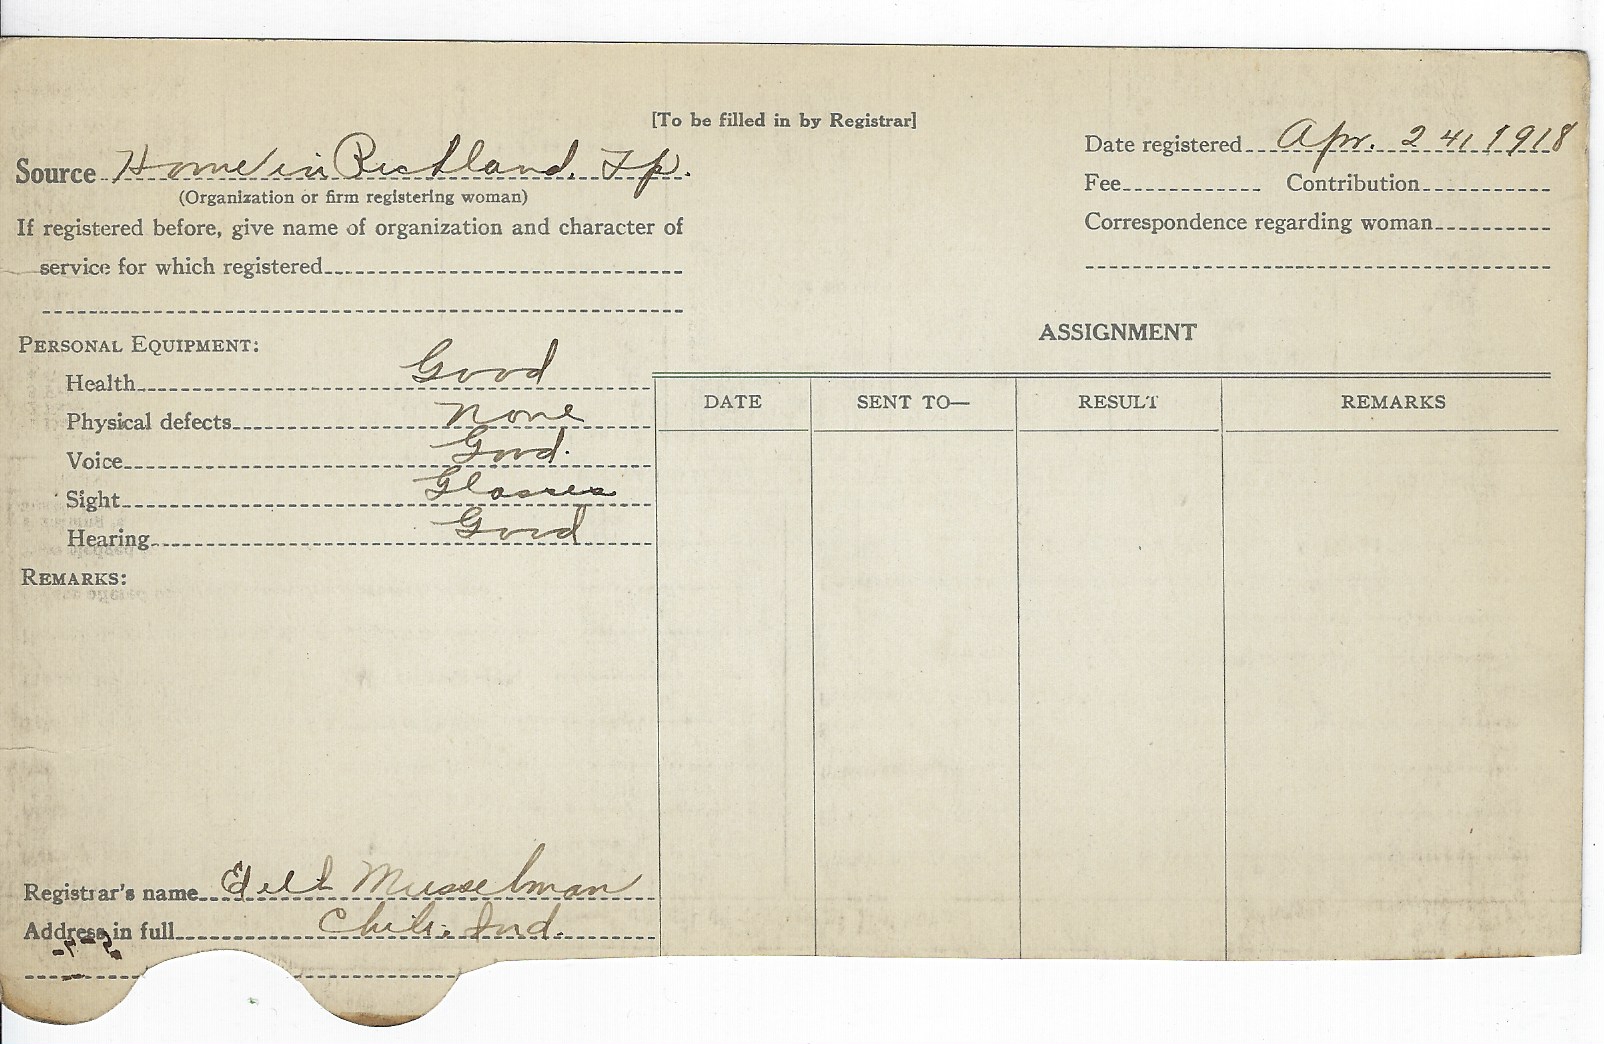 [To be filled in by Registrar]
Source Home in Richland. Tp.
(Organization or firm registering woman)
If registered before, give name of organization and character of
service for which registered
Date registered Apr. 24, 1918
Fee Contribution
Correspondence regarding woman
PERSONAL EQUIPMENT:
Health Good
Physical defects None
Voice Good.
Sight Glasses
Hearing Good
REMARKS:
ASSIGNMENT
DATE SENT TO— RESULT REMARKS
Registrar's name Musselman
Address in full Chili, Ind.